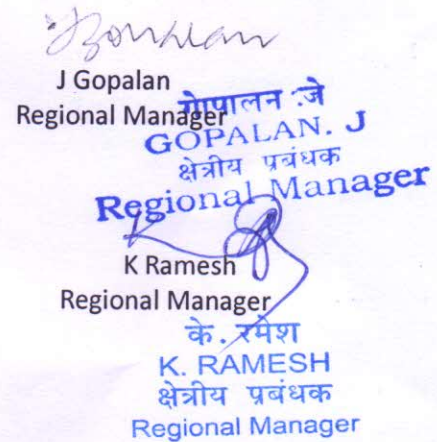 J Gopalan
Regional Manager
गोपालन .जे
GOPALAN. J
क्षेत्रीय प्रबंधक
Regional Manager
K Ramesh
Regional Manager
के. रमेश
K. RAMESH
क्षेत्रीय प्रबंधक
Regional Manager